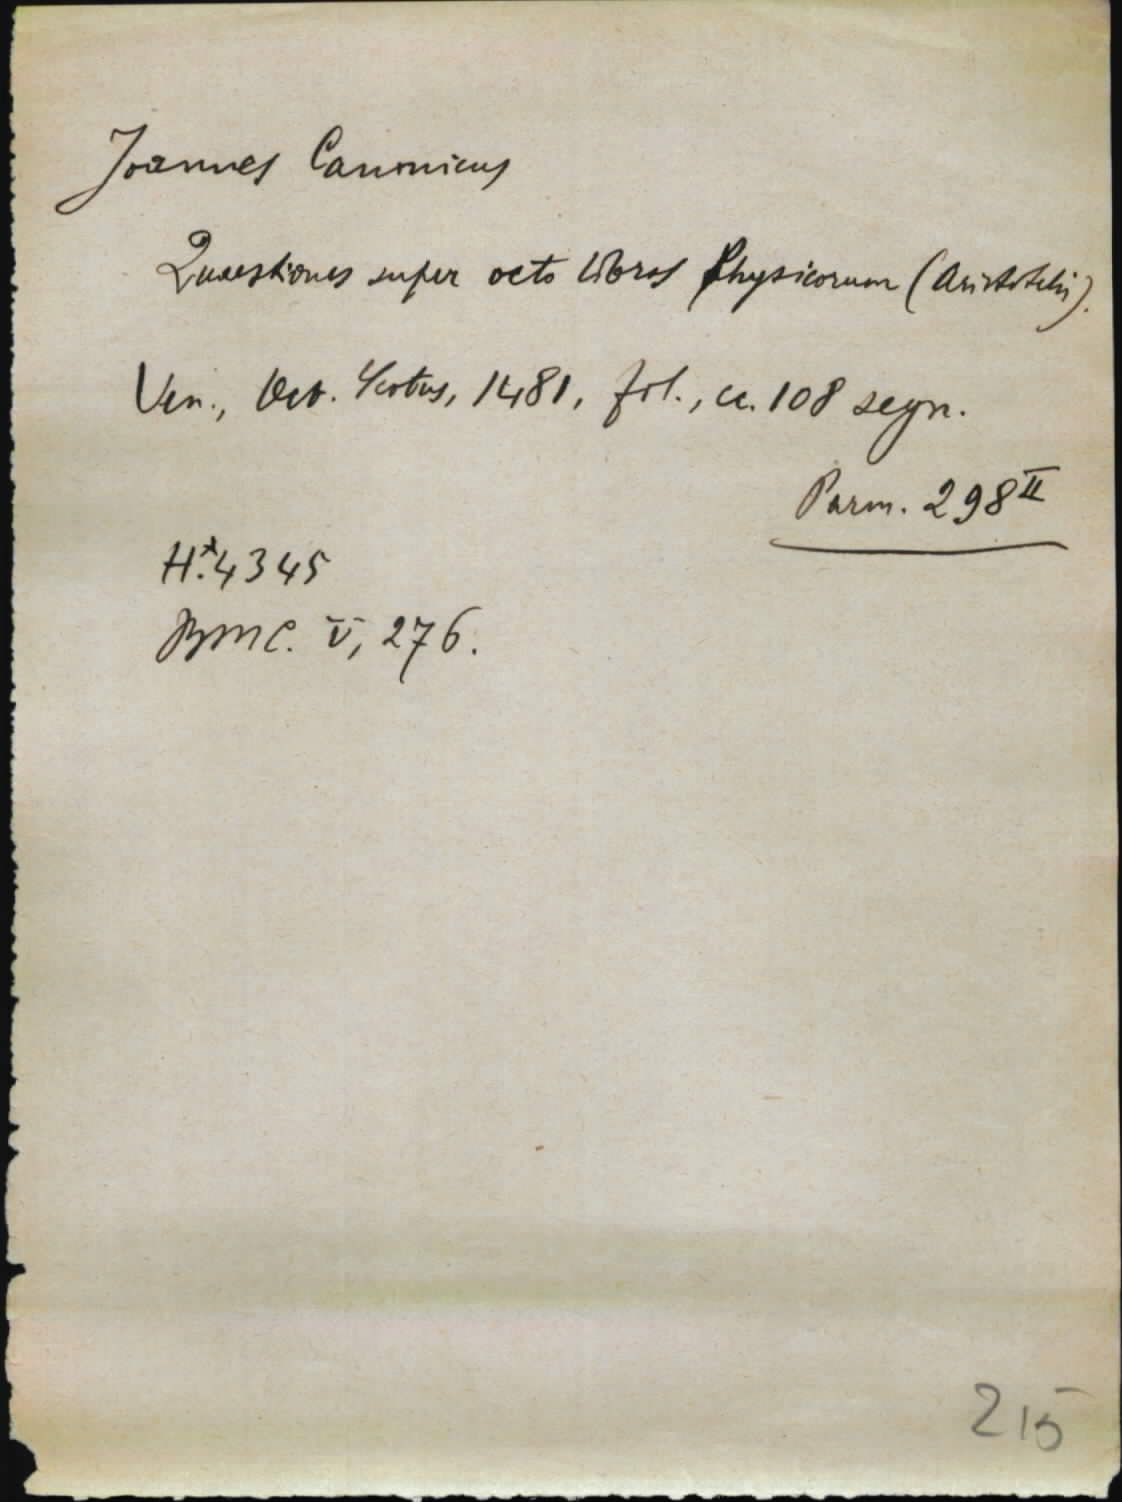 Joannes Canonicus
Quaestiones super octo libros Physicorum (Aristotelis).
Ven., Oct. Scotus, 1481, fol., cc. 108 segn.
Parm. 298 II
H.* 4345
BMC. V, 276.
215